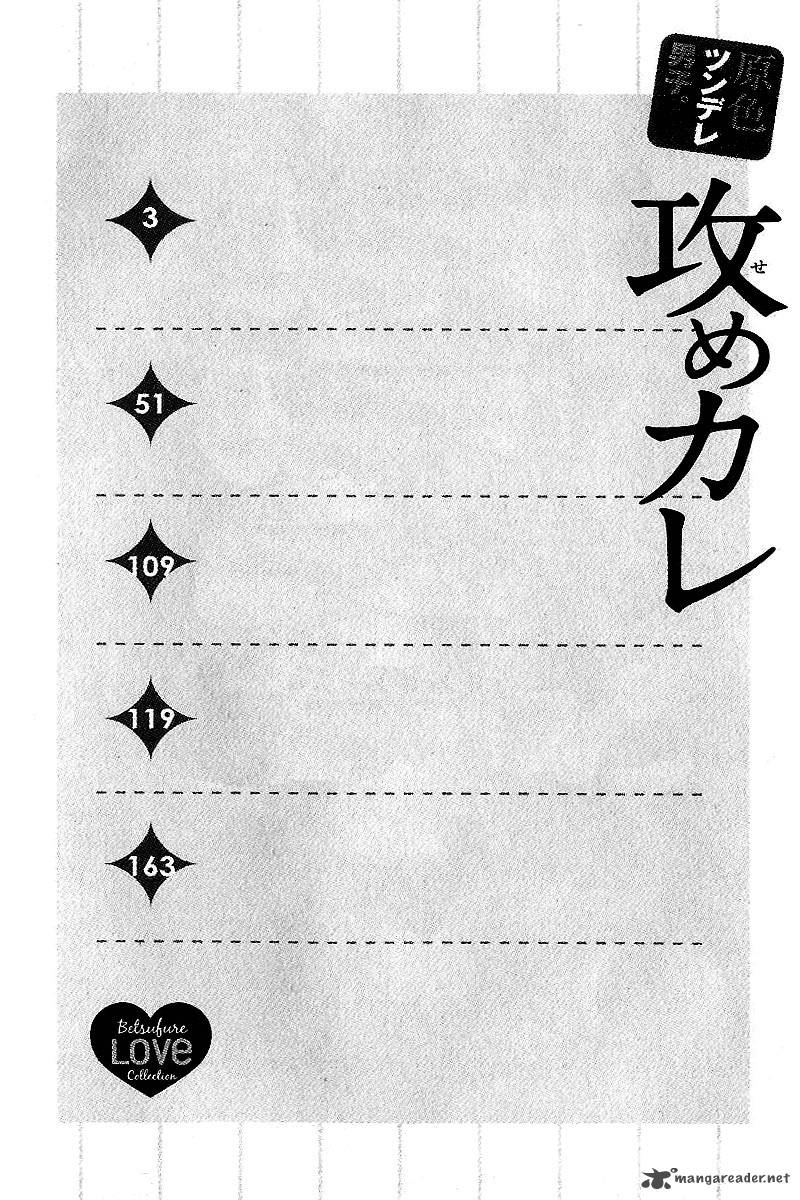 原色
ツンデレ
男子。
攻めカレ
せ
3
51
109
119
163
Betsufure
LOVE
Collection
mangareader.net